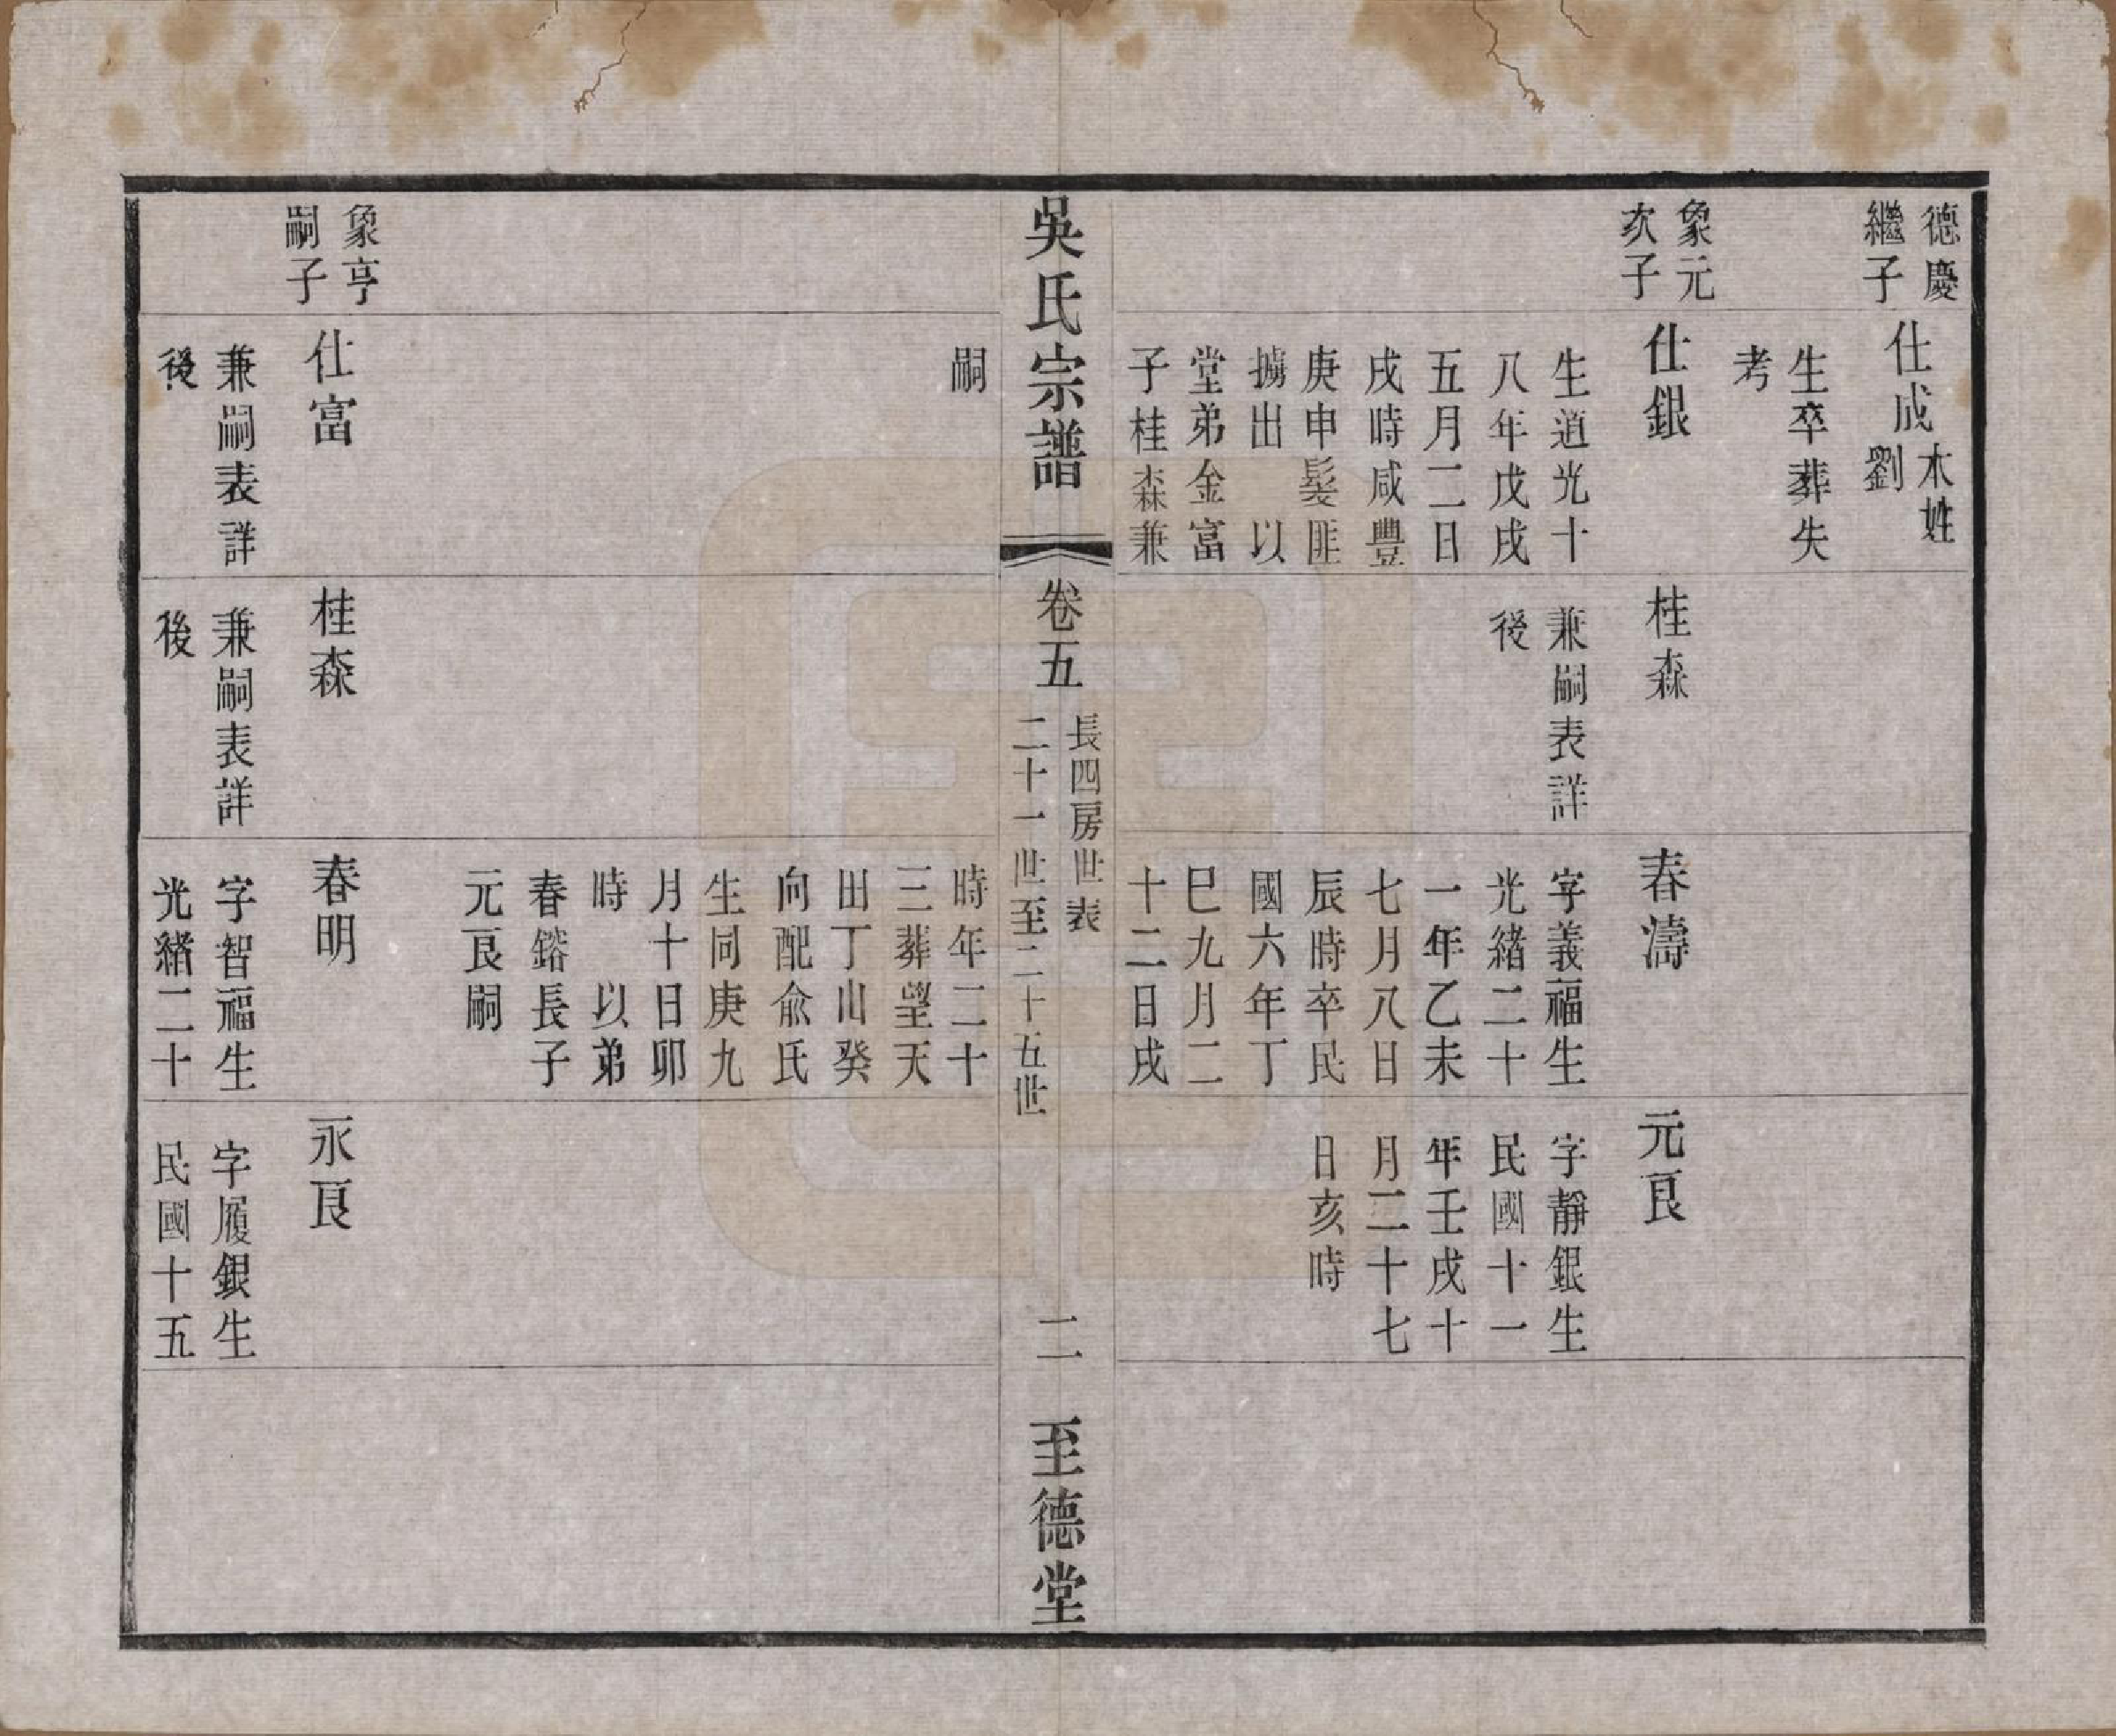 德慶
繼子
仕成
本姓
劉
生卒葬失
考
象元
次子
仕銀
生道光十
八年戊戌
五月二日
戌時咸豐
庚申髮匪
擄出　以
堂弟金富
子桂森兼
桂森
兼嗣表詳
後
春濤
字義福生
光緒二十
一年乙未
七月八日
辰時卒民
國六年丁
巳九月二
十二日戌
元良
字靜銀生
民國十一
年壬戌十
月二十七
日亥時
吳氏宗譜
卷五
長四房世表
二十一世至二十五世
二
至德堂
嗣
時年二十
三葬望天
田丁山癸
向配俞氏
生同庚九
月十日卯
時　以弟
春鎔長子
元良嗣
象亨
嗣子
仕富
兼嗣表詳
後
桂森
兼嗣表詳
後
春明
字智福生
光緒二十
永良
字履銀生
民國十五